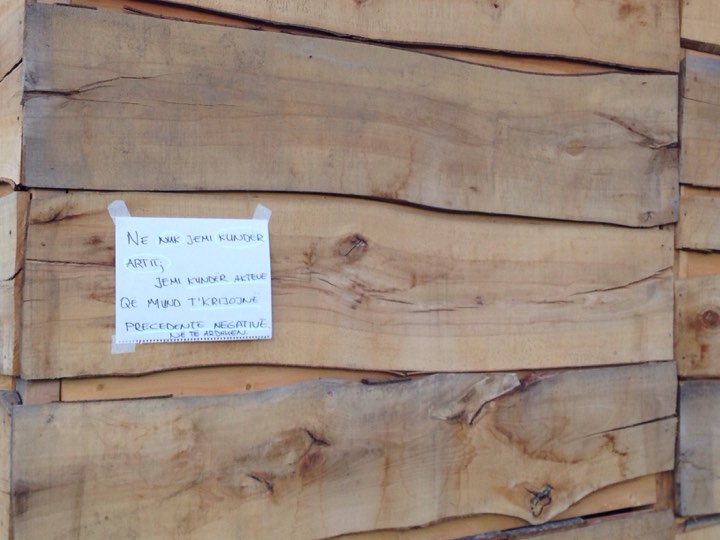 NE NUK JEMI KUNDER
ARTIT;
JEMI KUNDER AKTEVE
QE MUND T'KRIJOJNË
PRECEDENTE NEGATIVE
NE TE ARDHMEN.